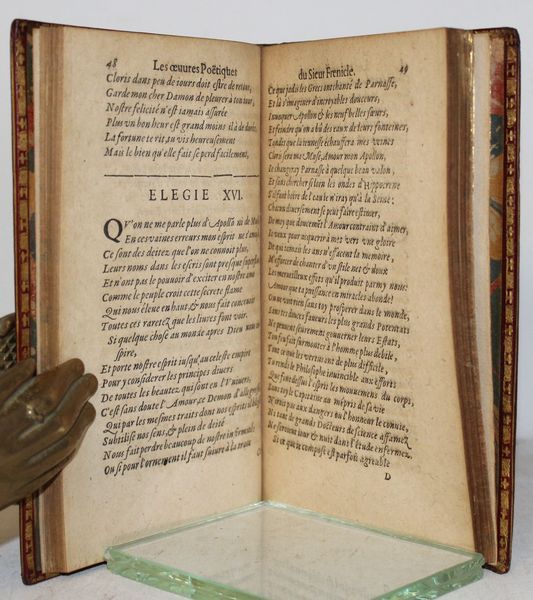 48
Les œuures Poëtiques
Cloris dans peu de iours doit estre de retour,
Garde mon cher Damon de pleurer à ton tour,
Nostre felicité n'est iamais assurée
Plus vn bonheur est grand moins il à de durée,
La fortune te rit au vis heureusement
Mais le bien qu'elle fait se perd facilement,
ELEGIE XVI.
QV'on ne me parle plus d'Apollõ ni de
En ces vaines erreurs mon esprit ne
Ce sont des deitez que l'on ne connoit plus,
Leurs noms dans les escris sont presque
Et n'ont pas le pouuoir d'exciter en nostre ame
Comme le peuple croit cette secrete flame
Qui nous éleue en haut, & nous fait conceuoir
Toutes ces raretez que les liures font voir.
Si quelque chose au monde après Dieu
spire,
Et porte nostre esprit iusqu'au celeste empire
Pour y considerer les principes diuers
De toutes les beautez qui sont en l'Vniuers,
C'est sans doute l'Amour, ce Demon
Qui par les mesmes traits dont nos esprits
Subtilise nos sens, & plein de deité
Nous fait perdre beaucoup de nostre infirmité
Ou si pour l'ornement il faut suiure à la trace
du Sieur Frenicle.
49
Ce que jadis les Grecs ont chanté de Parnasse,
Et là s'imaginer d'incroyables douceurs,
Inuoquer Apollon & les neuf belles sœurs,
Et feindre qu'on a bû des eaux de leurs fonteines,
Tandis que la ieunesse échauffera mes veines
Cloris sera ma Muse, Amour mon Apollon,
Ie changeray Parnasse à quelque beau valon,
Et sans chercher si loin les ondes d'Hyppocrene
S'il faut boire de l'eau ie n'iray qu'à la Sene:
Chacun diuersement se peut faire estimer,
De moy que doucemẽt l'Amour contraint d'aimer,
Ie veux pour acquerir à mes vers vne gloire
De qui iamais les ans n'effacent la memoire,
M'efforcer de chanter d'vn stile net & doux
Les merueilleux effets qu'il produit parmy nous:
Amour que ta puissance en miracles abonde!
On ne void rien sans toy prosperer dans le monde,
Sans tes douces faueurs les plus grands Potentats
Ne peuuent seurement gouuerner leurs Estats,
Ton feu fait surmonter à l'homme plus debile,
Tout ce que les vertus ont de plus difficile,
Tu rends le Philosophe inuincible aux efforts
Que font dessus l'esprit les mouuemens du corps,
Sans toy le Capitaine au mépris de sa vie
N'iroit pas aux dangers où l'honneur le conuie,
Ni tant de grands Docteurs de science affamez
Ne seroient iour & nuit dans l'étude enfermez.
Si ce qu'ie compose est parfois agreable
D